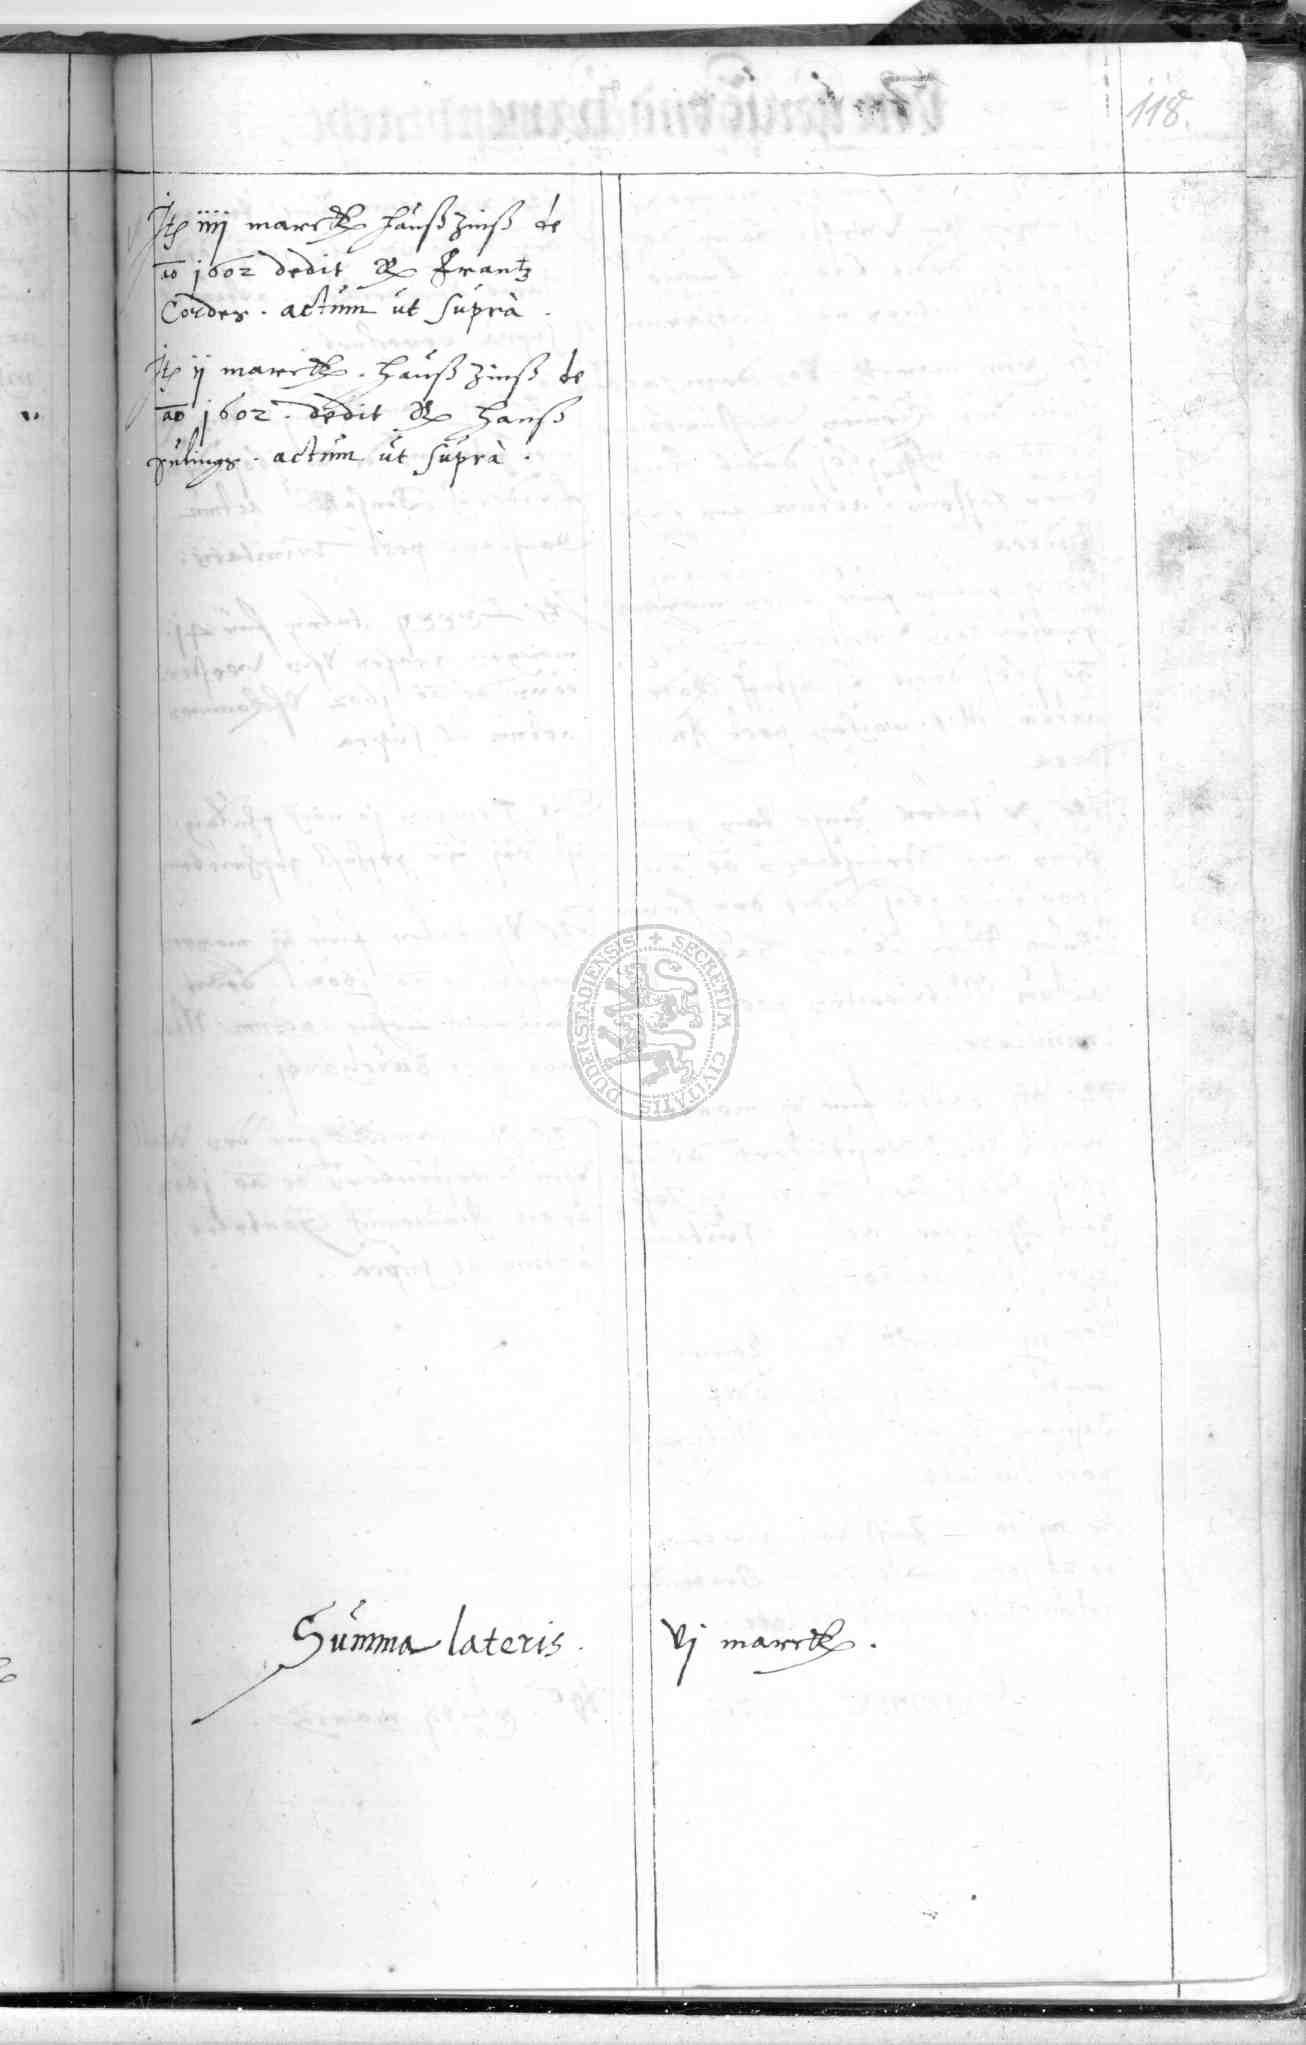 118.
Itē iiij marck haußzinß de
ao 1602 dedit H Frantz
Cordes. actum ut suprà.
Itē ij marck. haußzinß de
ao 1602. dedit H Hanß
actum ut suprà.
Summa lateris. vj marck.
SECRETUM CIVITATIS DUDERSTADIENSIS